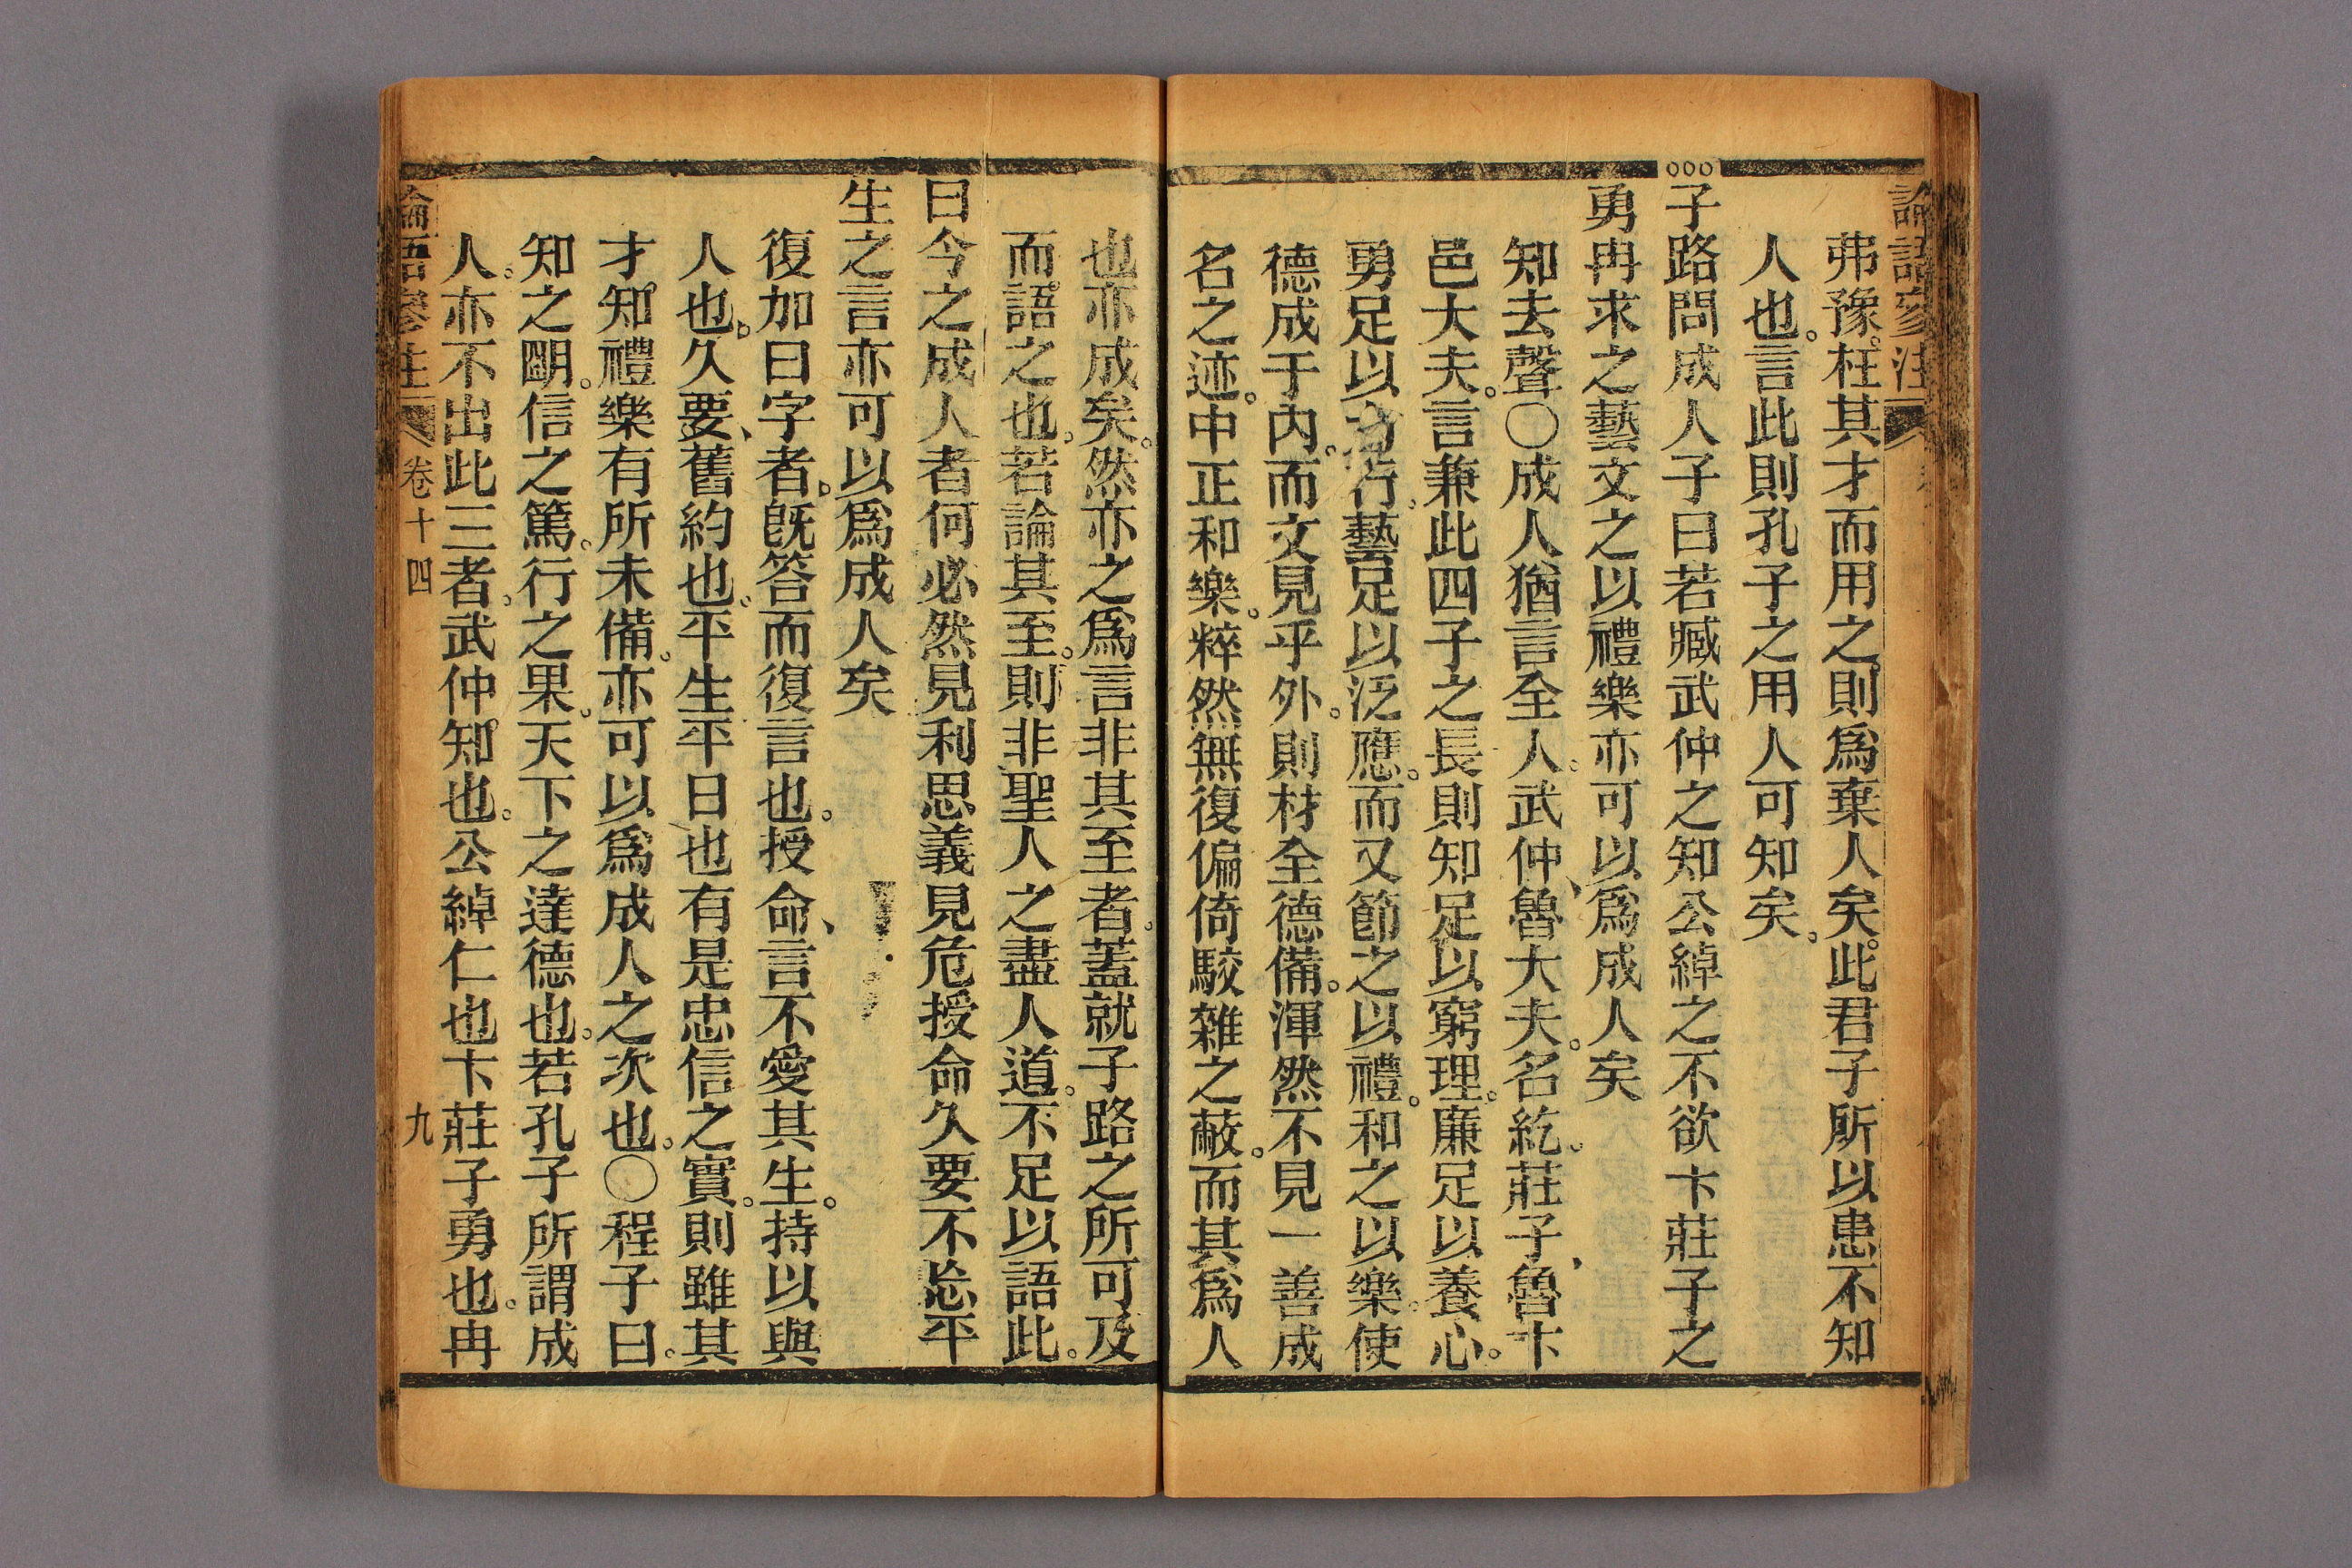 論語參注
弗豫。枉其才而用之。則爲棄人矣。此君子所以患不知
人也。言此則孔子之用人可知矣。
子路問成人子曰若臧武仲之知公綽之不欲卞莊子之
勇冉求之藝文之以禮樂亦可以爲成人矣
知去聲○成人猶言全人。武仲、魯大夫。名紇。莊子、魯卞
邑大夫。言兼此四子之長則知足以窮理。廉足以養心。
勇足以力行。藝足以泛應。而又節之以禮。和之以樂。使
德成于内。而文見乎外。則材全德備。渾然不見一善成
名之迹。中正和樂。粹然無復偏倚駮雜之蔽。而其爲人
也亦成矣。然亦之爲言非其至者。蓋就子路之所可及
而語之也。若論其至。則非聖人之盡人道。不足以語此。
曰今之成人者何必然見利思義見危授命久要不忘平
生之言亦可以爲成人矣
復加曰字者。旣答而復言也。授命、言不愛其生。持以與
人也。久要、舊約也。平生平日也有是忠信之實。則雖其
才。知禮樂有所未備。亦可以爲成人之次也。○程子曰。
知之明。信之篤。行之果。天下之達德也。若孔子所謂成
人。亦不出此三者。武仲知也。公綽仁也卞莊子勇也。冉
論語參注 卷十四 九